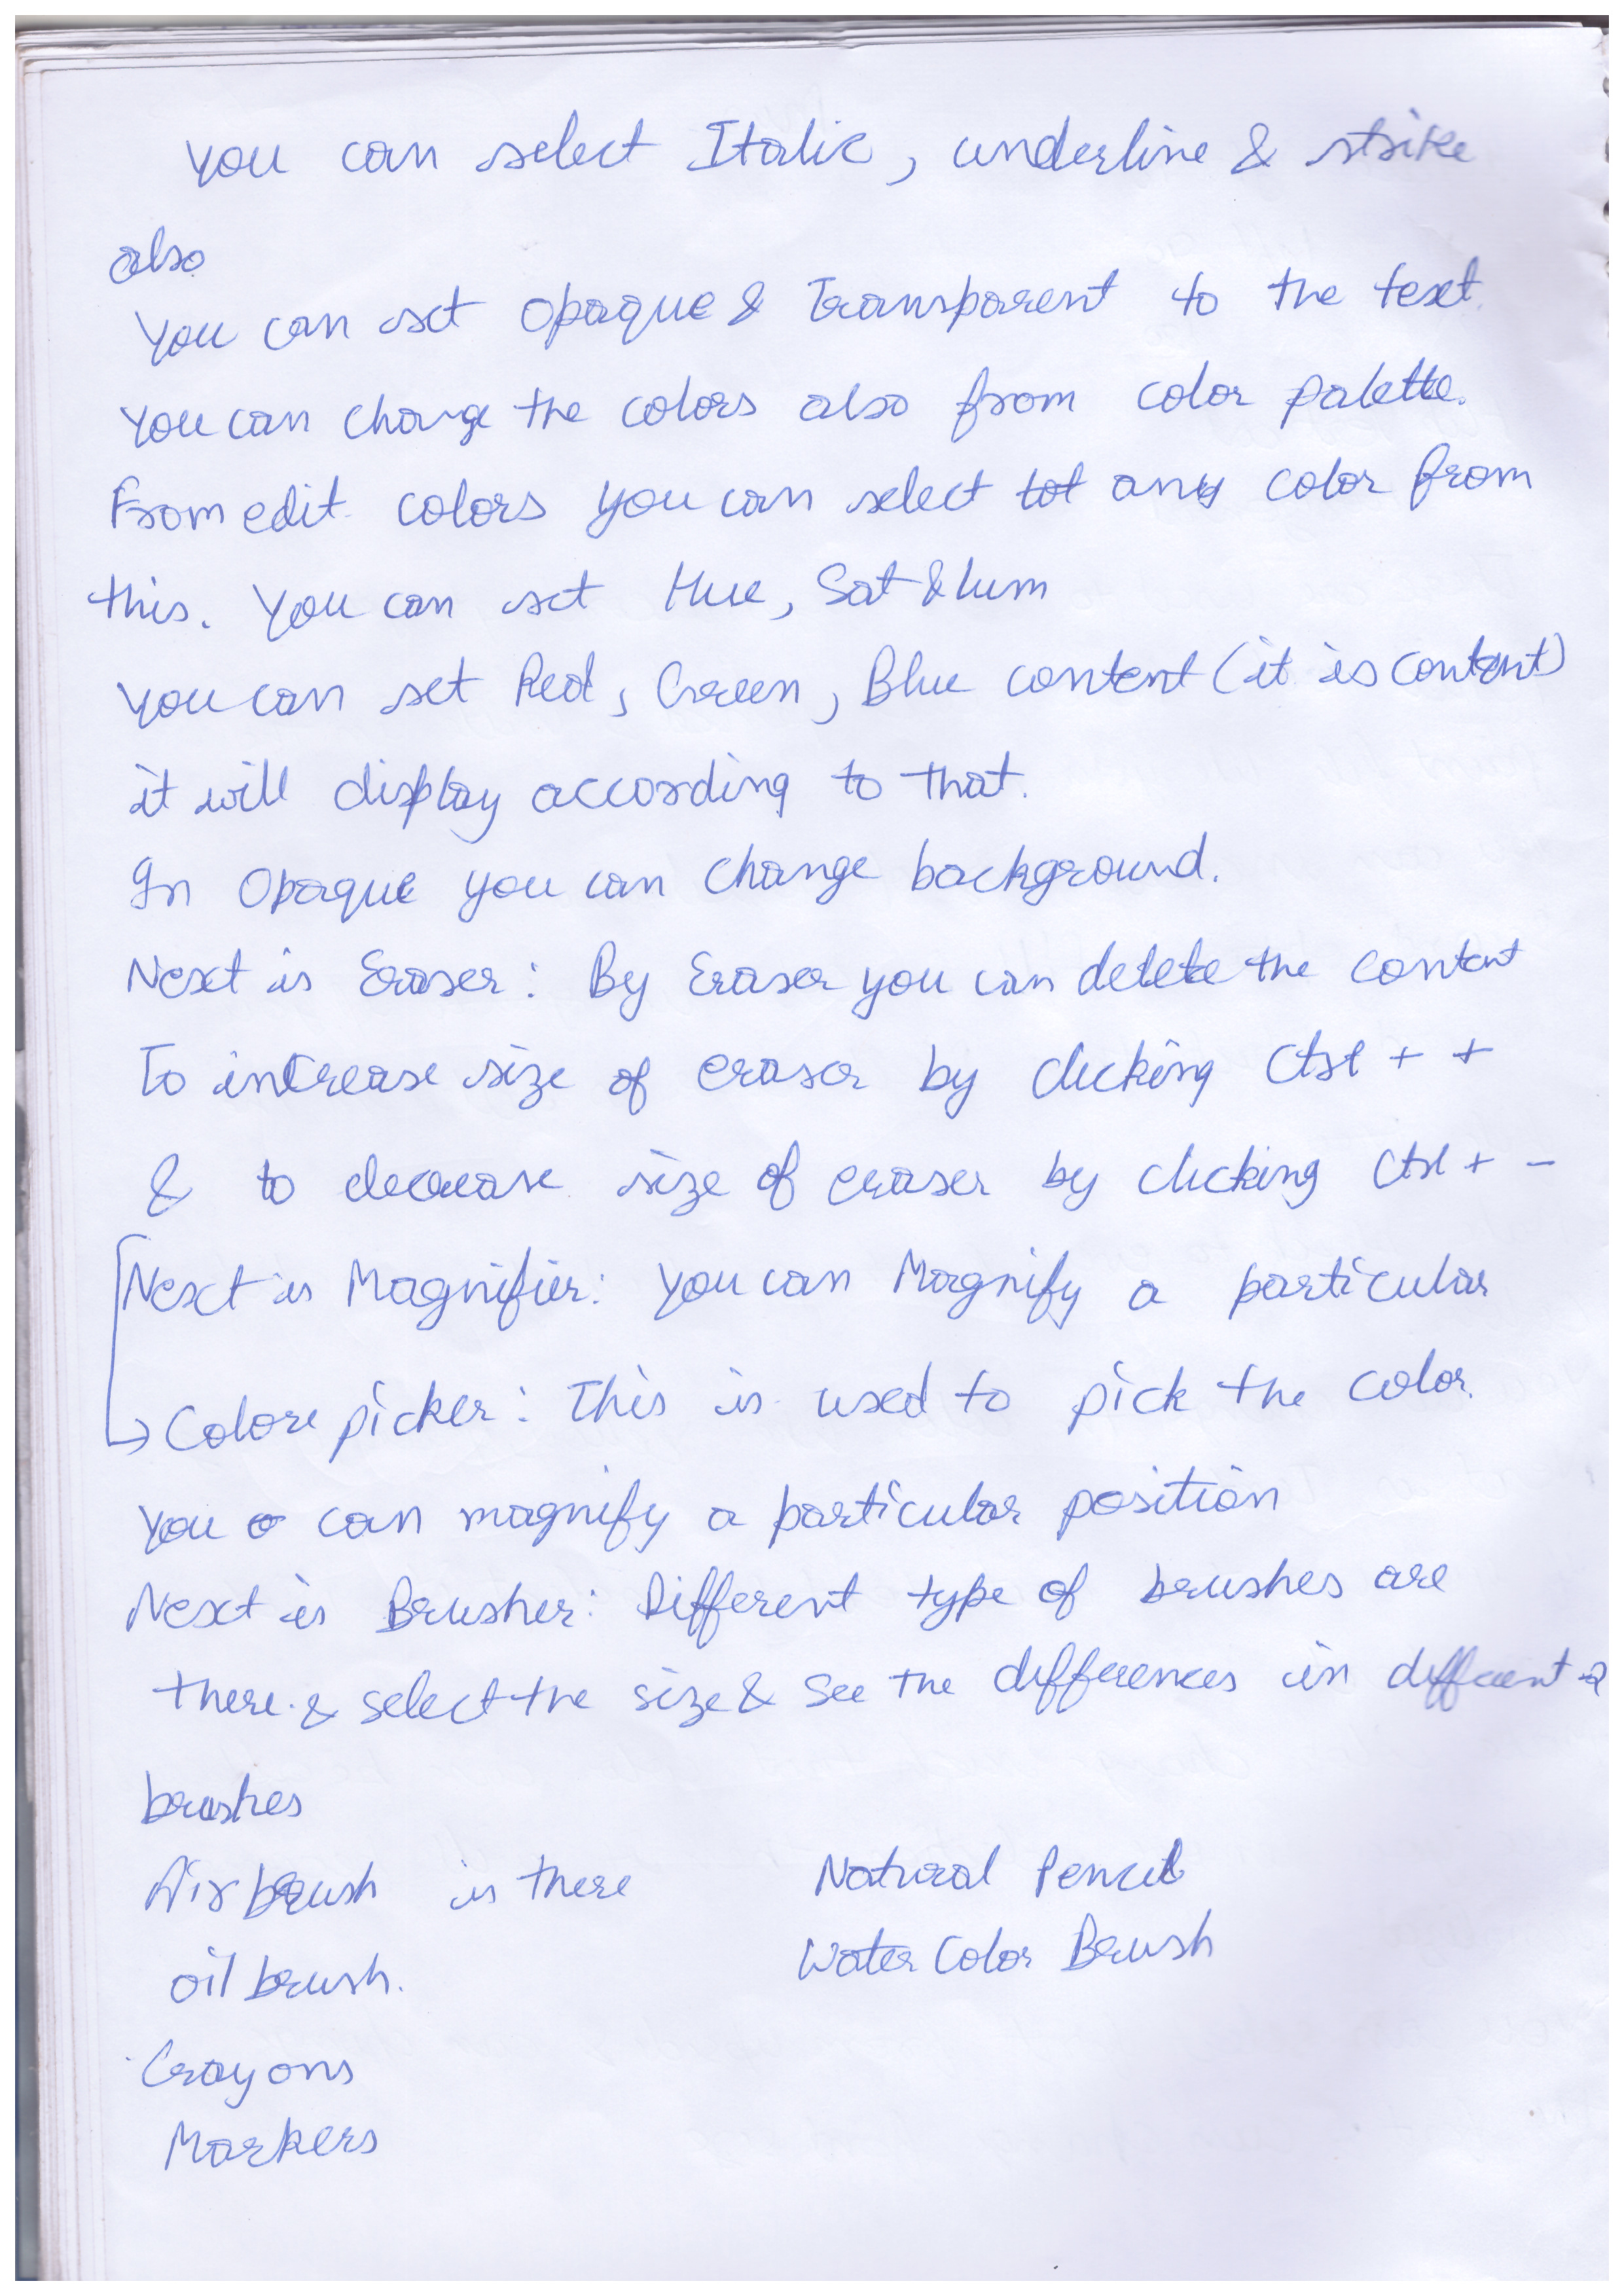 You can select Italic, underline & strike
also
You can set Opaque & Transparent to the text.
You can change the colors also from color palette.
From edit colors you can select tot any color from
this. You can set Hue, Sat & lum
You can set Red, Green, Blue content (it is content)
it will display according to that.
In Opaque you can change background.
Next is Eraser : By Eraser you can delete the content
To increase size of eraser by clicking Ctrl + +
& to decrease size of eraser by clicking Ctrl + -
Next is Magnifier : You can Magnify a particular
→ Colore picker : This is used to pick the color.
You can magnify a particular position
Next is Brusher : Different type of brushes are
there. & select the size & see the differences in different
brushes
Air brush is there Natural Pencil
oil brush. Water Color Brush
Crayons
Markers